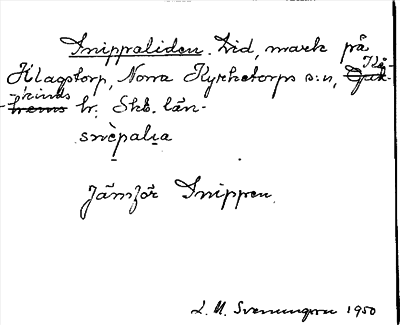 Snippaliden. Lid, mark på
Klagstorp, Norra Kyrketorps s:n, Kå-
kinds hd. Skb. län.
snèpalia
Jämför Snippen.
L. M. Svenungsson 1950